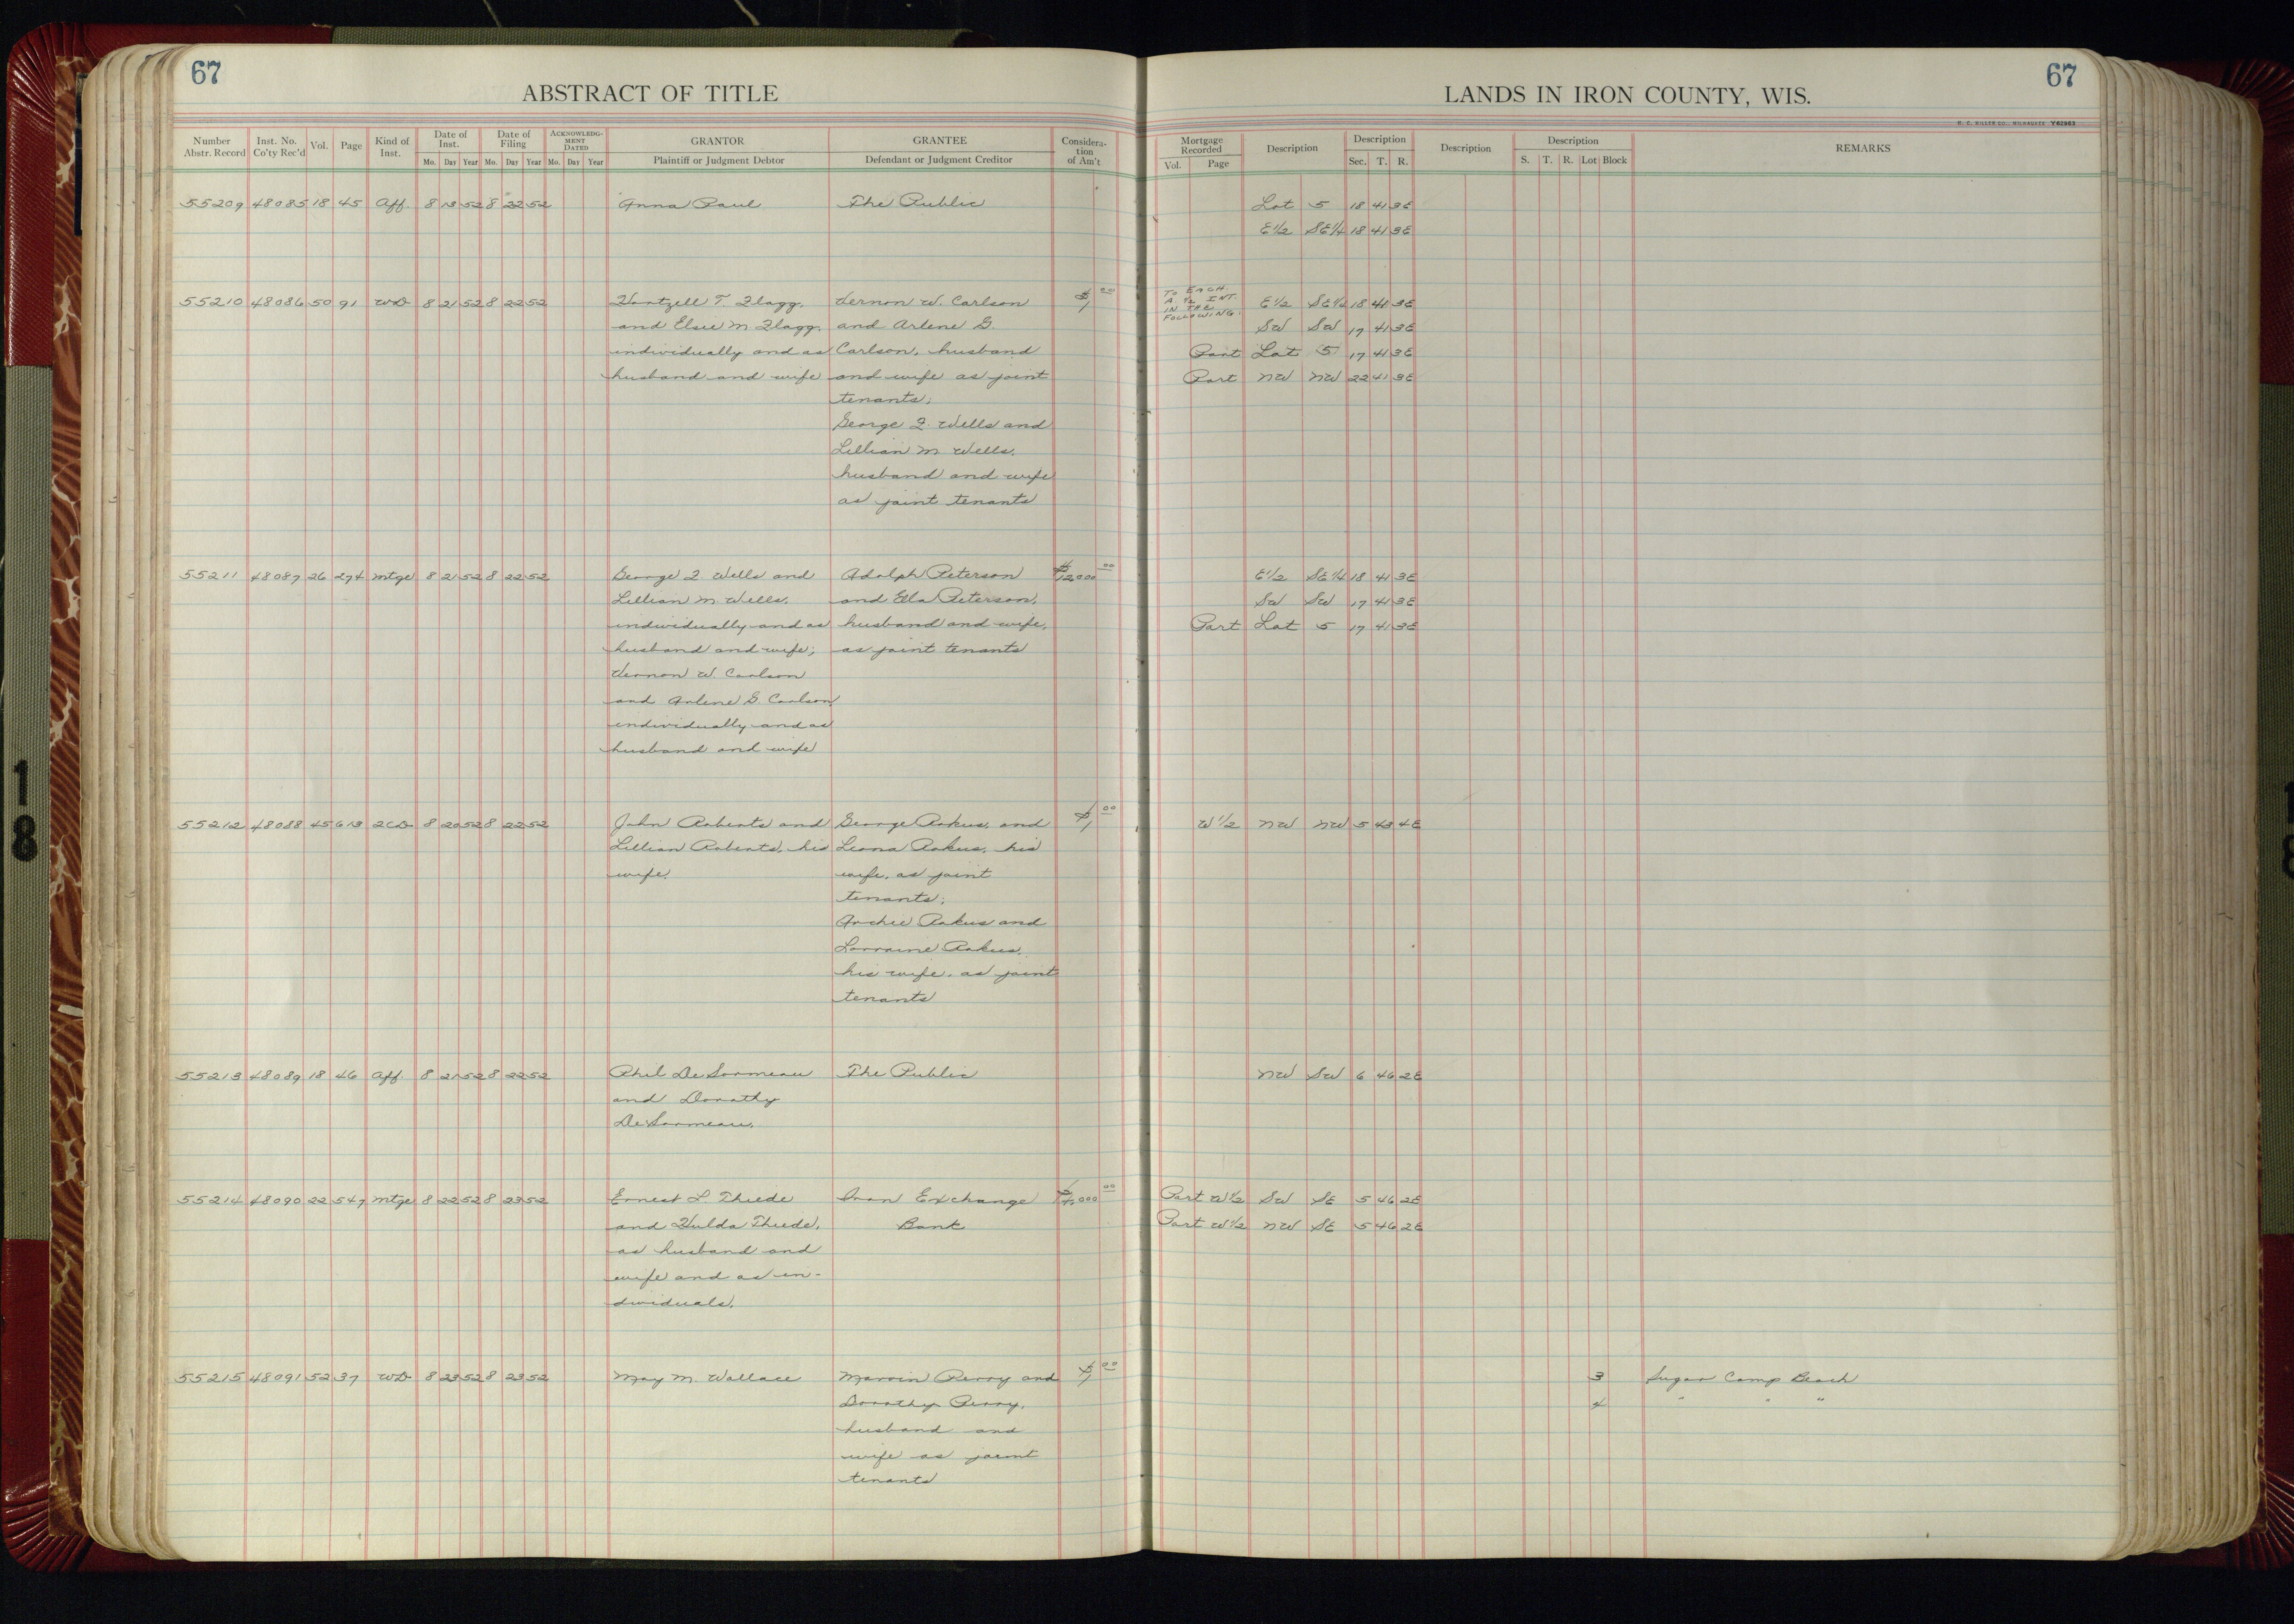 67
ABSTRACT OF TITLE
LANDS IN IRON COUNTY, WIS.
67
H. C. MILLER CO., MILWAUKEE Y62963
Number Abstr. Record | Inst. No. Co'ty Rec'd | Vol. | Page | Kind of Inst. | Date of Inst. Mo. Day Year | Date of Filing Mo. Day Year | ACKNOWLEDGMENT DATED Mo. Day Year | GRANTOR Plaintiff or Judgment Debtor | GRANTEE Defendant or Judgment Creditor | Consideration of Am't | Mortgage Recorded Vol. Page | Description | Description Sec. T. R. | Description | Description S. T. R. Lot Block | REMARKS
55209 48085 18 45 Aff. 8 13 52 8 22 52 Anna Paul The Public Lot 5 18 41 3E
E1/2 SE1/4 18 41 3E
55210 48086 50 91 WD 8 21 52 8 22 52 Hartzell T. Flagg, Vernon W. Carlson $1 00 TO EACH A 1/2 INT. IN THE FOLLOWING. E1/2 SE1/4 18 41 3E
and Elsie M. Flagg, and Arlene G. SW SW 17 41 3E
individually and as Carlson, husband Part Lot 5 17 41 3E
husband and wife and wife as joint Part NW NW 22 41 3E
tenants;
George F. Wells and
Lillian M. Wells,
husband and wife
as joint tenants
55211 48087 26 274 Mtge 8 21 52 8 22 52 George F. Wells and Adolph Peterson $12,000 00 E1/2 SE1/4 18 41 3E
Lillian M. Wells, and Ella Peterson, SW SW 17 41 3E
individually and as husband and wife, Part Lot 5 17 41 3E
husband and wife; as joint tenants
Vernon W. Carlson
and Arlene G. Carlson
individually and as
husband and wife
55212 48088 45 613 2CD 8 20 52 8 22 52 John Roberts and George Rakus, and $1 00 W1/2 NW NW 5 43 4E
Lillian Roberts, his Leona Rakus, his
wife. wife, as joint
tenants;
Archie Rakus and
Lorraine Rakus,
his wife, as joint
tenants
55213 48089 18 46 Aff. 8 21 52 8 22 52 Phil DeSormeau The Public NW SW 6 46 2E
and Dorothy
DeSormeau.
55214 48090 22 547 Mtge 8 22 52 8 23 52 Ernest L. Thiede Iron Exchange 00 Part W1/2 SW SE 5 46 2E
and Hulda Thiede, Bank Part W1/2 NW SE 5 46 2E
as husband and
wife and as in-
dividuals.
55215 48091 52 37 WD 8 23 52 8 23 52 May M. Wallace Marvin Perry and $1 00 3 Sugar Camp Beach
Dorothy Perry, 4 " " "
husband and
wife as joint
tenants
18